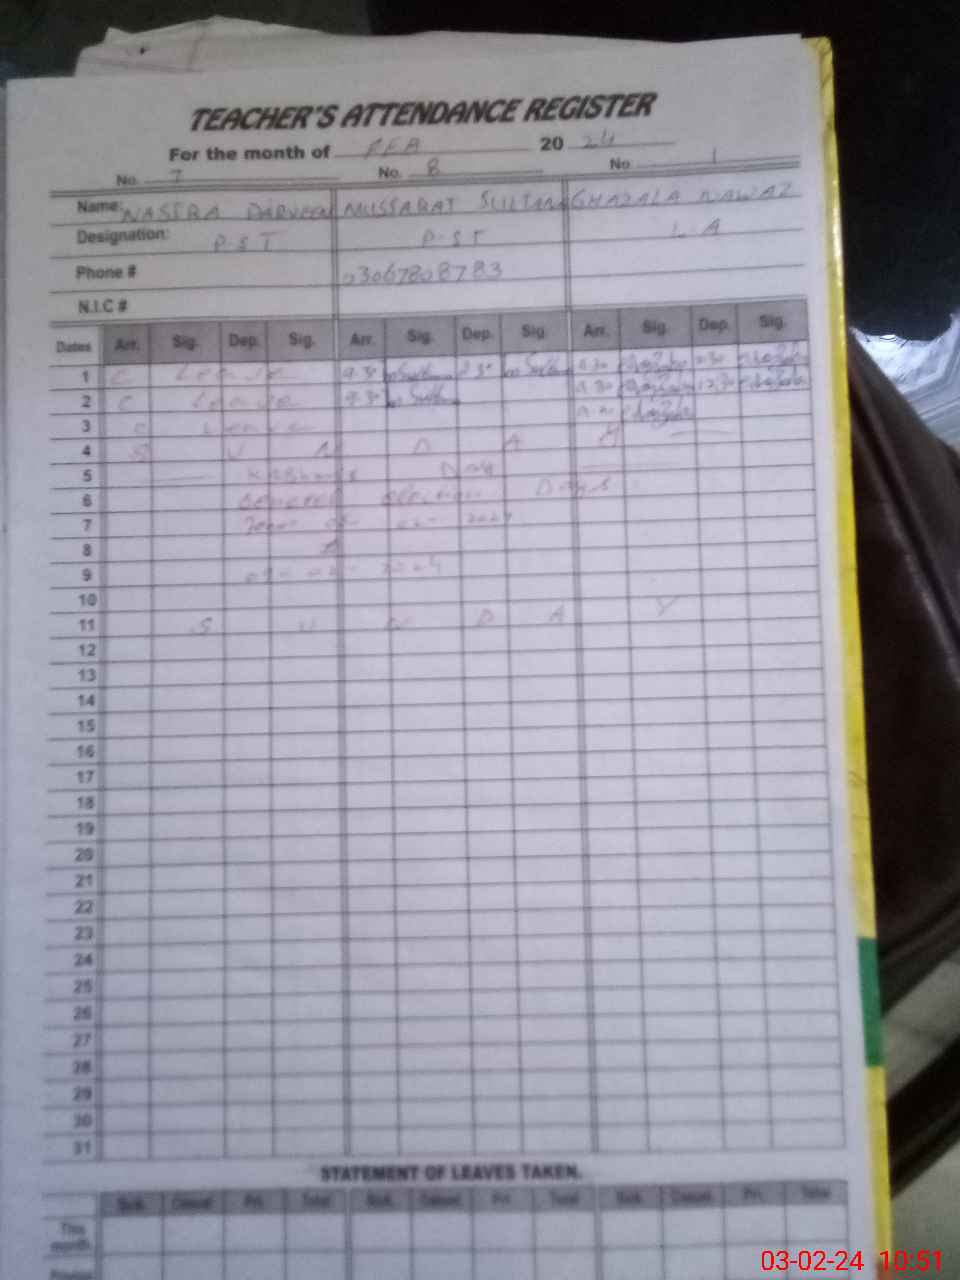 TEACHER'S ATTENDANCE REGISTER
For the month of FEB 20 24
No. 7 No. 8 No 1
Name: NASIRA PARVEEN MUSSARAT SULTANA GHAZALA NAWAZ
Designation: P.S.T P.S.T L.A
Phone # 03067808783
N.I.C #
Dates Arr. Sig. Dep. Sig. Arr. Sig. Dep. Sig. Arr. Sig. Dep. Sig.
1 C Leave 9.30
2 C Leave 9.30 12.30
3 C Leave
4 S U N D A Y
5 Kashmir Day
6 General Election Days
7 02- 2024
8
9 09-02-2024
10
11 S U N D A Y
12
13
14
15
16
17
18
19
20
21
22
23
24
25
26
27
28
29
30
31
STATEMENT OF LEAVES TAKEN.
Sick. Casual. Pri. Total Sick. Casual. Pri. Total Sick. Casual. Pri. Total
This month.
03-02-24 10:51